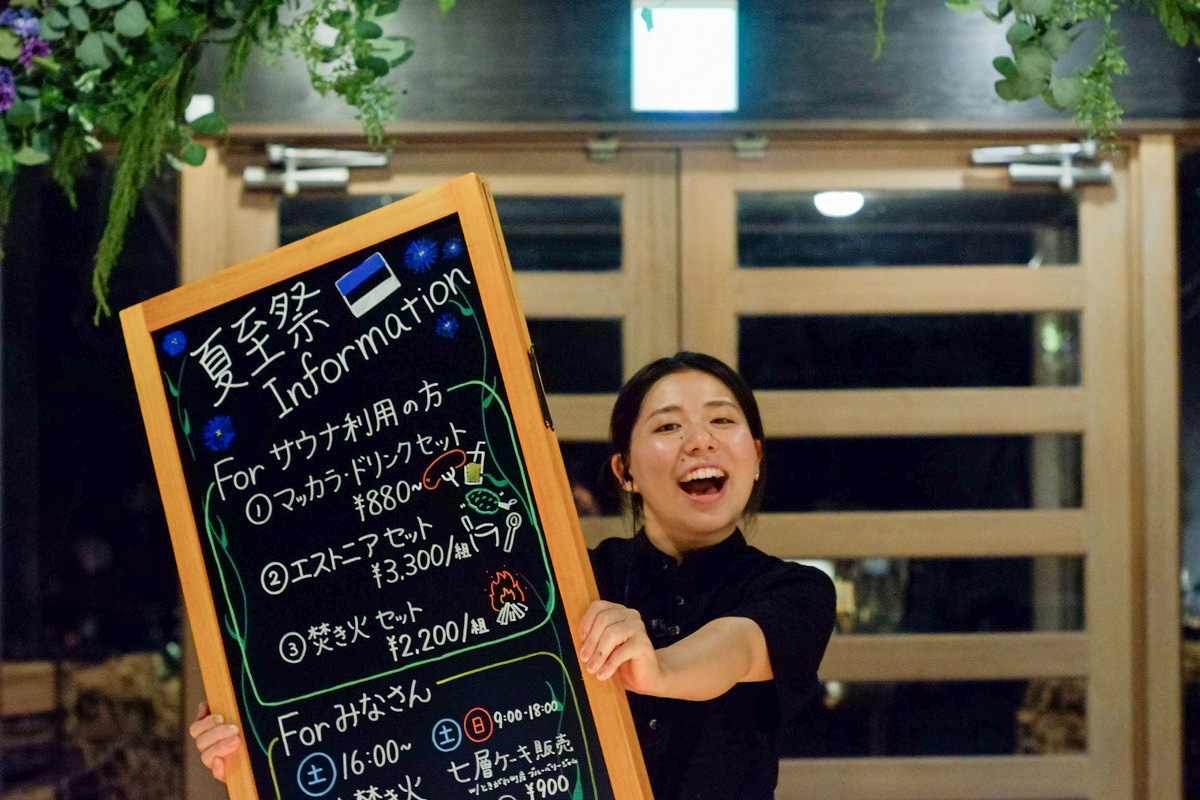 夏至祭
Information
For サウナ利用の方
① マッカラ・ドリンクセット
¥880~
② エストニアセット
¥3,300/組
③ 焚き火セット
¥2,200/組
For みなさん
土 16:00~
焚き火
土 日 9:00-18:00
七層ケーキ販売
w/ときがわ町産ブルーベリージャム
¥900